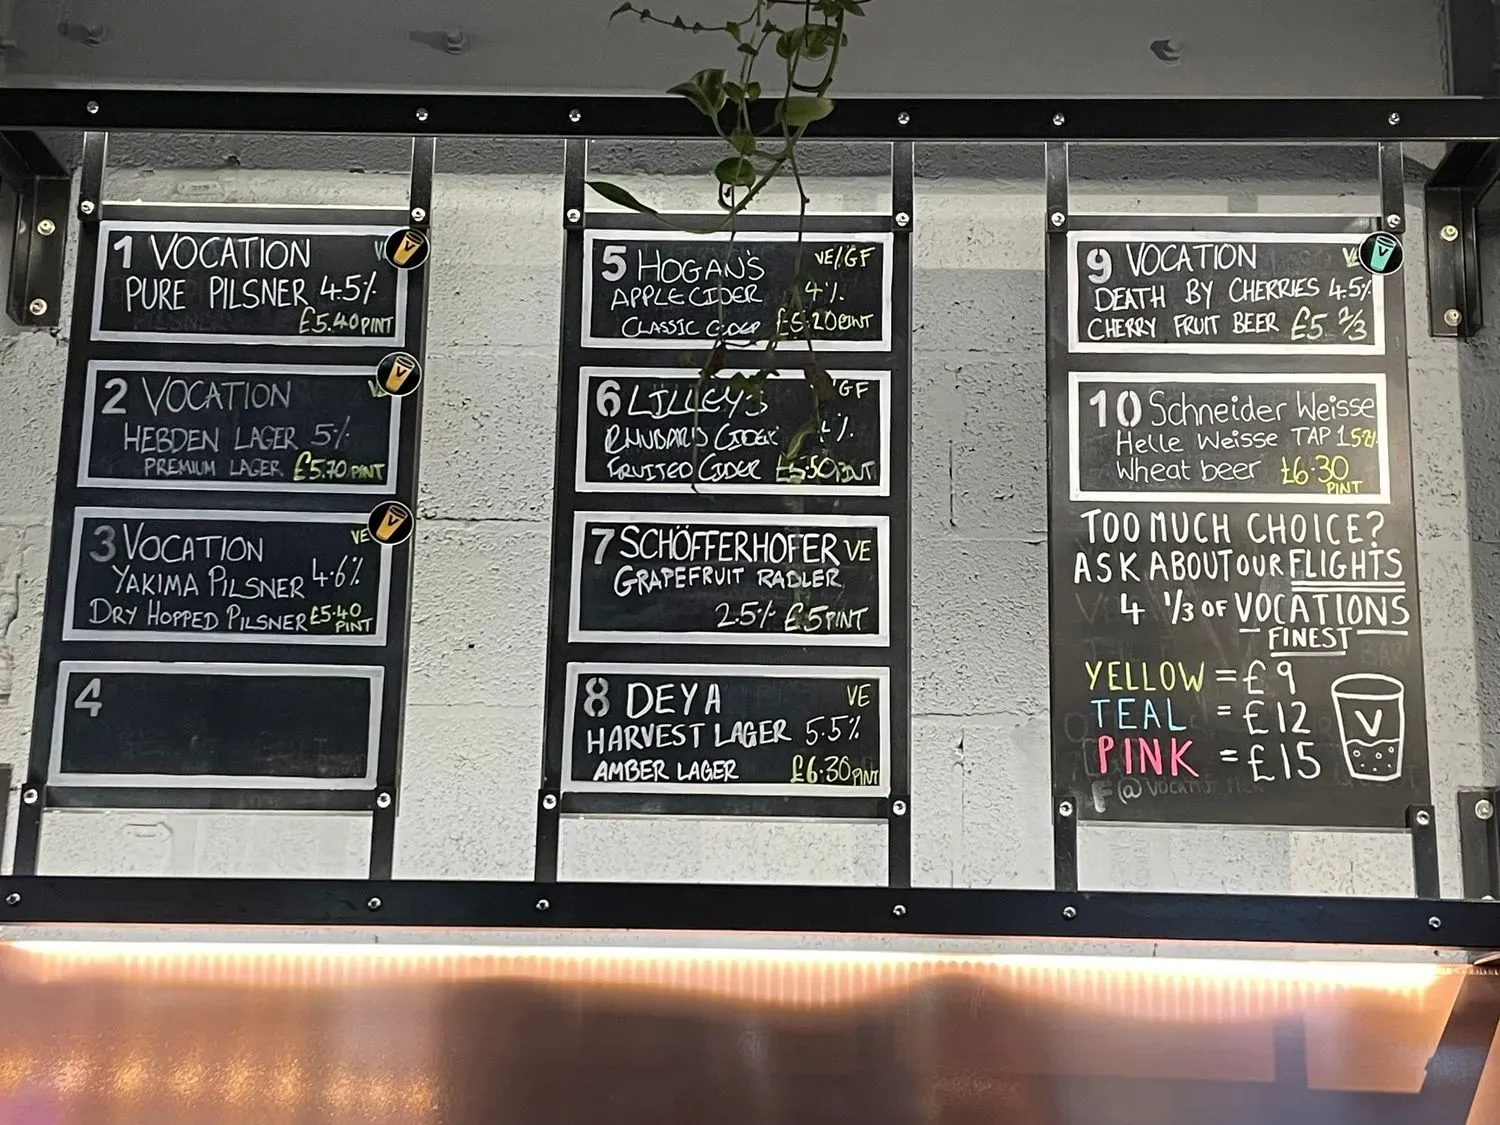 1 VOCATION
PURE PILSNER 4.5%
£5.40 PINT
2 VOCATION
HEBDEN LAGER 5%
PREMIUM LAGER £5.70 PINT
3 VOCATION VE
YAKIMA PILSNER 4.6%
DRY HOPPED PILSNER £5.40
PINT
4
5 HOGAN'S VE/GF
APPLE CIDER 4%
CLASSIC CIDER £5.20 PINT
6 LILLEY'S GF
RHUBARB CIDER %
FRUITED CIDER £5.50 PINT
7 SCHÖFFERHOFER VE
GRAPEFRUIT RADLER
2.5% £5 PINT
8 DEYA VE
HARVEST LAGER 5.5%
AMBER LAGER £6.30 PINT
9 VOCATION
DEATH BY CHERRIES 4.5%
CHERRY FRUIT BEER £5 2/3
10 Schneider Weisse
Helle Weisse TAP 1 5.2%
Wheat beer £6.30
PINT
TOO MUCH CHOICE?
ASK ABOUT OUR FLIGHTS
4 1/3 OF VOCATIONS
FINEST
YELLOW = £9
TEAL = £12
PINK = £15
V